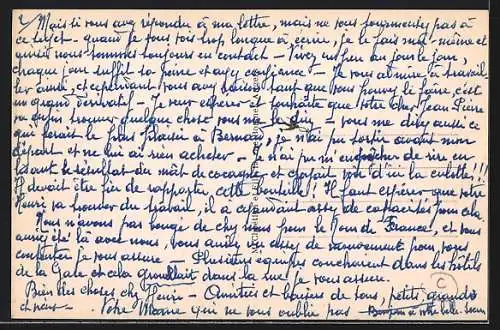 2/ Mais si vous avez répondu à ma lettre, mais ne vous tourmentez pas à
ce sujet - quand je suis trop longue à écrire, je le fais moi-même et
ainsi nous sommes toujours en contact - Vivez un peu au jour le jour,
chaque jour suffit sa peine et ayez confiance - Je vous admire à travail-
ler ainsi, et cependant vous avez raison tant que vous pouvez le faire, c'est
un grand dérivatif - Je veux espérer et souhaite que votre cher Jean Pierre
va enfin trouver quelque chose vous me le - vous me direz aussi ce
qui ferait le plus plaisir à Bernard, je n'ai pu sortir avant mon
départ et ne lui ai rien acheter - Je n'ai pu m'empêcher de rire en
lisant le résultat du mât de cocagne, et d'une culotte!!!
Il devait être fier de rapporter cette bouteille! Il faut espérer que
Henri va trouver du travail, il a cependant assez de capacités pour cela.
Nous n'avons pas bougé de chez nous pour le Tour de France, et vous
auriez été là avec nous, vous auriez vu assez de mouvement pour vous
contenter je vous assure - Plusieurs équipes couchaient dans les hôtels
de la Gare et cela grouillait dans la rue je vous assure.
Bien des choses chez Henri - Amitiés et baisers de tous, petits, grands
et vieux - Votre Mame qui ne vous oublie pas
C